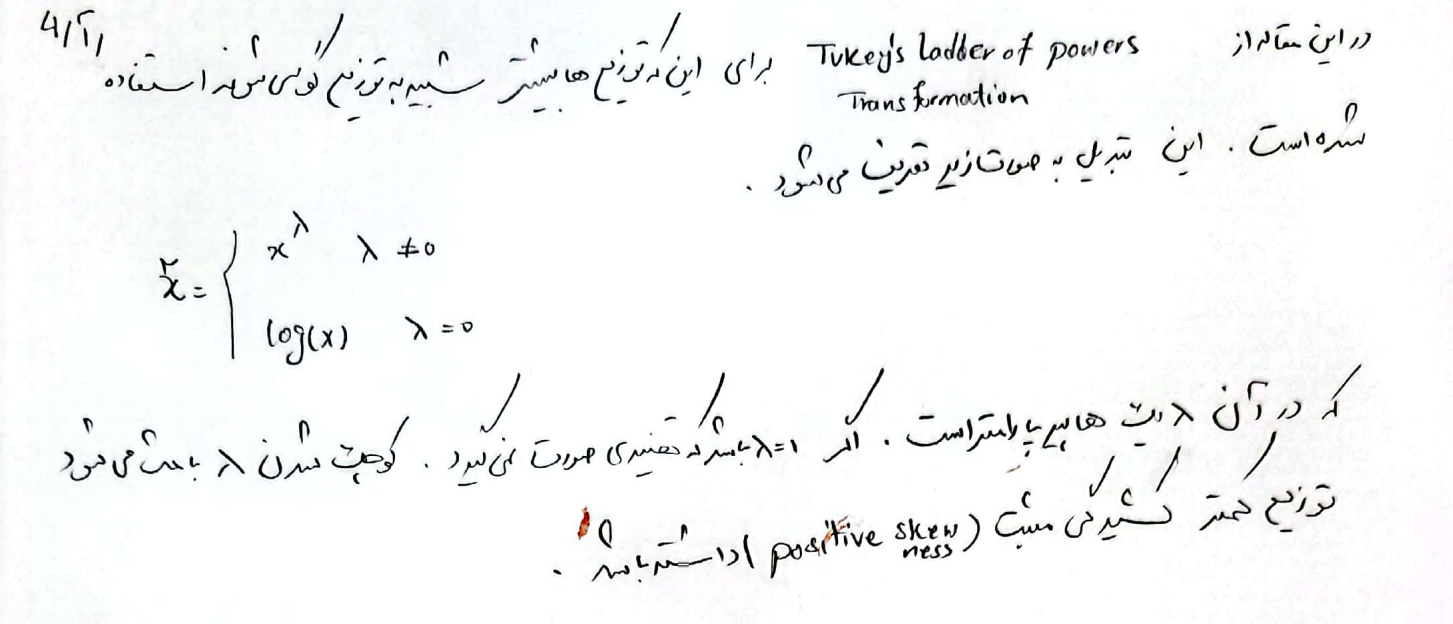 4/آ/
در این مقاله از Tukey's ladder of powers Transformation برای این که توزیع ها بیشتر شبیه به توزیع گوسی شوند استفاده
شده است. این تبدیل به صورت زیر تعریف می شود.
x̃ = { x^λ λ ≠ 0
log(x) λ = 0
که در آن λ یک هایپرپارامتر است. اگر λ=1 باشد که تغییری صورت نمی گیرد. کوچک شدن λ باعث می شود
توزیع کمتر کشیدگی مثبت (positive skewness) داشته باشد.